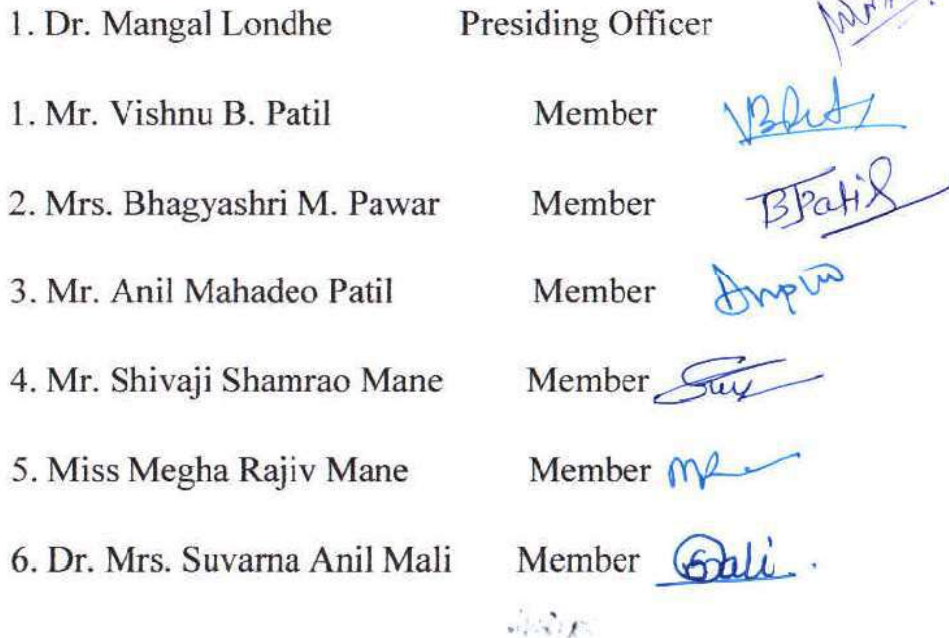 1. Dr. Mangal Londhe Presiding Officer
1. Mr. Vishnu B. Patil Member
2. Mrs. Bhagyashri M. Pawar Member BPatil
3. Mr. Anil Mahadeo Patil Member
4. Mr. Shivaji Shamrao Mane Member
5. Miss Megha Rajiv Mane Member
6. Dr. Mrs. Suvarna Anil Mali Member